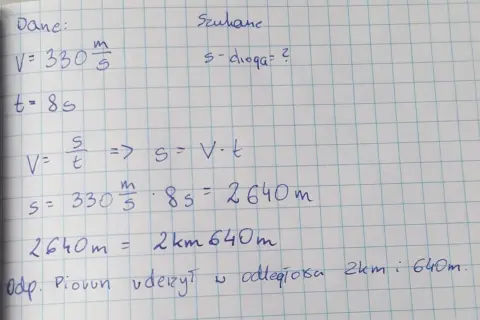 Dane: Szukane
V = 330 m/s s - droga = ?
t = 8s
V = s/t => s = V · t
s = 330 m/s · 8s = 2640m
2640m = 2km 640m
Odp. Piorun uderzył w odległości 2km i 640m.